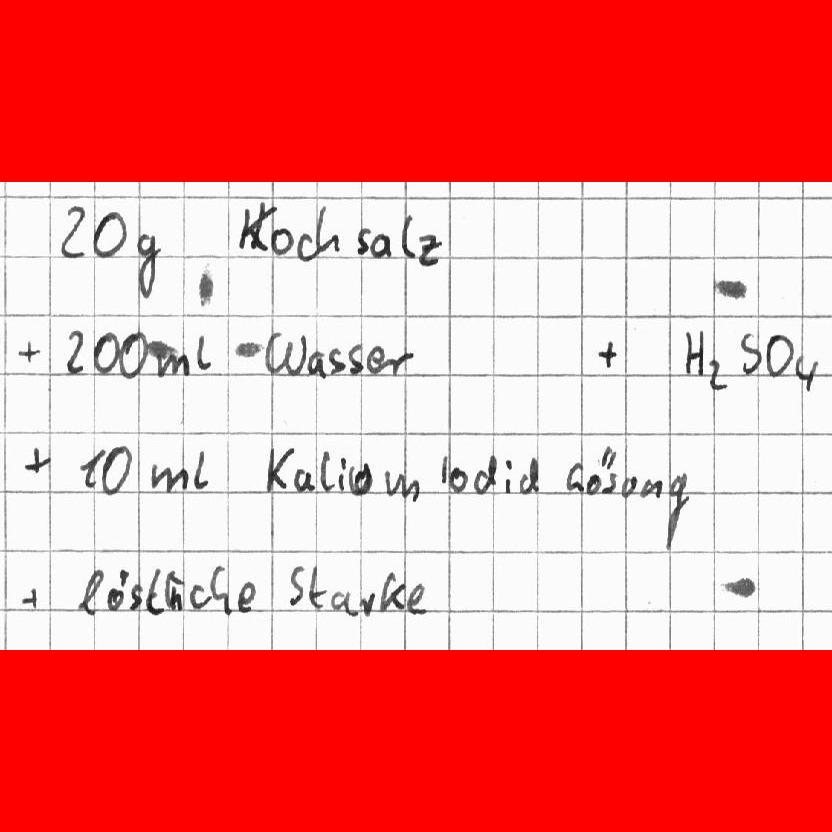 20g Kochsalz
+ 200ml Wasser + H₂SO₄
+ 10 ml Kalium Iodid Lösung
+ lösliche Stärke